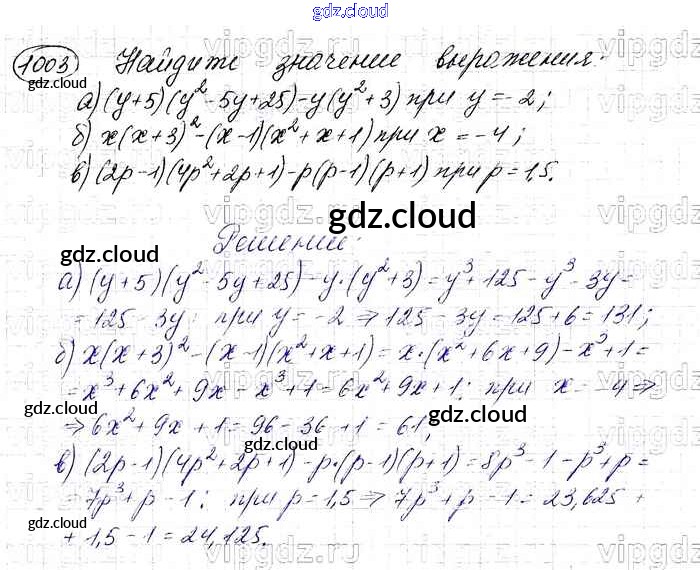 gdz.cloud
1003 Найдите значение выражения:
gdz.cloud
а) (y+5)(y²-5y+25)-y(y²+3) при y=-2;
б) x(x+3)²-(x-1)(x²+x+1) при x=-4;
в) (2p-1)(4p²+2p+1)-p(p-1)(p+1) при p=1,5.
gdz.cloud
gdz.cloud
Решение:
gdz.cloud
а) (y+5)(y²-5y+25)-y·(y²+3)=y³+125-y³-3y=
=125-3y; при y=-2 ⇒ 125-3y=125+6=131;
gdz.cloud
б) x(x+3)²-(x-1)(x²+x+1)=x·(x²+6x+9)-x³+1=
=x³+6x²+9x-x³+1=6x²+9x+1; при x=-4 ⇒
gdz.cloud
gdz.cloud
⇒ 6x²+9x+1=96-36+1=61;
gdz.cloud
в) (2p-1)(4p²+2p+1)-p·(p-1)(p+1)=8p³-1-p³+p=
=7p³+p-1; при p=1,5 ⇒ 7p³+p-1=23,625+
gdz.cloud
gdz.cloud
+1,5-1=24,125.